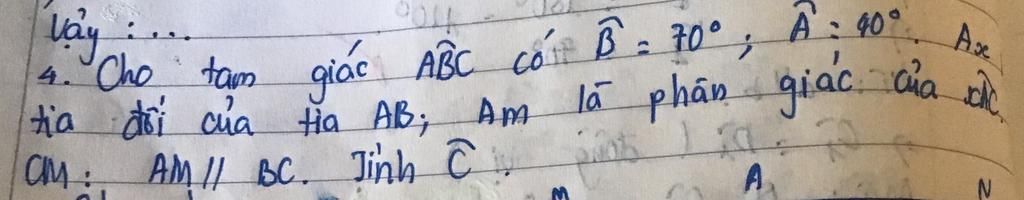 Vậy : ...
4. Cho tam giác ABC có B̂ = 70°; Â = 40°. Ax
tia đối của tia AB; Am là phân giác của xAC.
CM: AM // BC. Tính Ĉ.
M A N